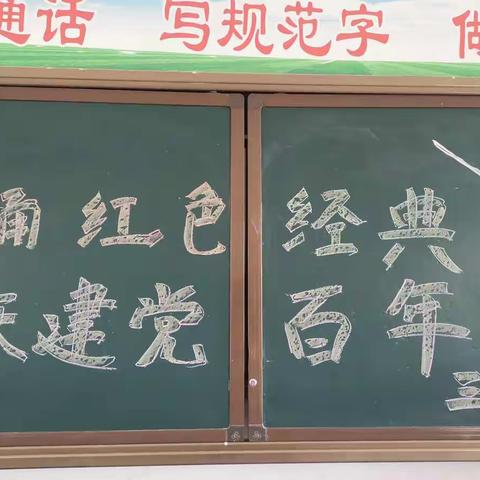 通话 写规范字 做
诵红色经典
庆建党百年